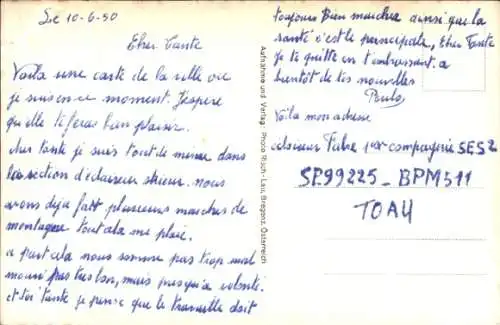 Le 10-6-50
Cher Tante
Voila une carte de la ville ou
je suis en ce moment. J'espere
qu'elle te feras bien plaisir.
cher tante je suis tout de mieme dans
la section d'éclaireur skieur. nous
avons deja fait plusieurs marches de
montagne tout cela me plaie.
a part cela nous somme pas trop mal
nourri pas tres bon, mais presqu'a volonté.
et toi tante je pense que le travaille doit
toujours bien marcher ainsi que la
santé c'est le principale, Cher Tante
Je te quitte en t'embrassant. a
bientot de tes nouvelles
Voila mon adresse
chasseur Fabre 1er compagnie SES2
SP.99225_BPM511
TOA4
Aufnahme und Verlag: Photo Risch-Lau, Bregenz, Österreich